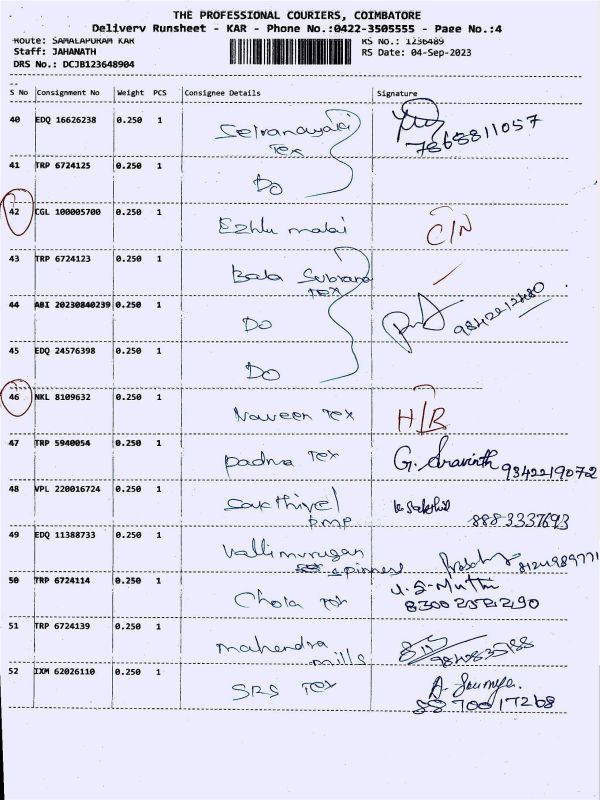 THE PROFESSIONAL COURIERS, COIMBATORE
Delivery Runsheet - KAR - Phone No.:0422-3505555 - Page No.:4
Route: SAMALAPURAM KAR RS No.: 1236489
Staff: JAHANATH RS Date: 04-Sep-2023
DRS No.: DCJB123648904
S No Consignment No Weight PCS Consignee Details Signature
40 EDQ 16626238 0.250 1 Selvanayaki Tex 7868811057
41 TRP 6724125 0.250 1 Do
42 CGL 100005700 0.250 1 Ezhlu malai C/N
43 TRP 6724123 0.250 1 Bala Subrama Tex
44 ABI 20230840239 0.250 1 Do
45 EDQ 24576398 0.250 1 Do
46 NKL 8109632 0.250 1 Naveen Tex
47 TRP 5940054 0.250 1 Padma Tex G. Aravinth 9842219072
48 VPL 220016724 0.250 1 Sakthivel P.m.P 8883337693
49 EDQ 11388733 0.250 1 Vallimurugan
50 TRP 6724114 0.250 1 Chola Tex
51 TRP 6724139 0.250 1 Mahendra Mills
52 IXM 62026110 0.250 1 SRS Tex A. Soumya. 8870017268